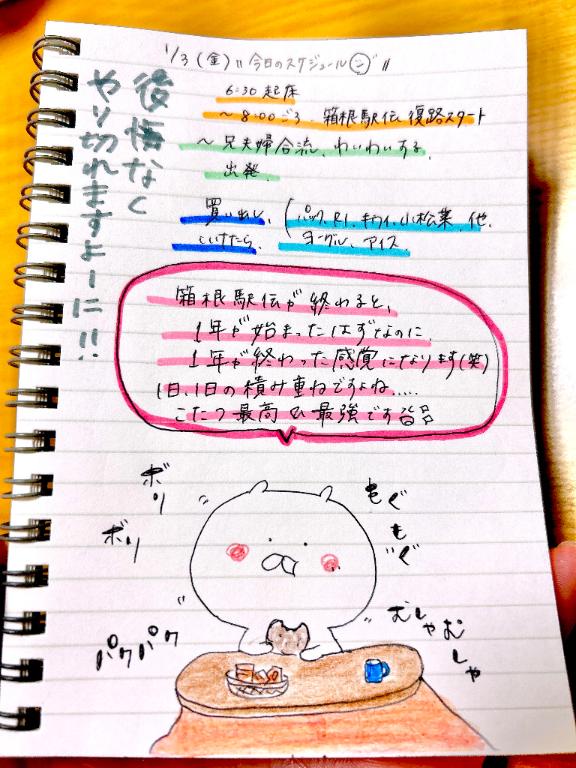 1/3(金)"今日のスケジュール"
6:30 起床
〜8:00ごろ、箱根駅伝 復路スタート
〜兄夫婦合流、わいわいする。
出発
買い出し、(パック、R1、キウイ、小松菜、他、
いけたら、ヨーグル、アイス
後悔なく
やり切れますよーに!!
箱根駅伝が終わると、
1年が始まったはずなのに、
1年が終わった感覚になります(笑)
1日、1日の積み重ねですよね.....
こたつ最高&最強です
ボリ
ボリ
もぐ
もぐ
パクパク
むしゃむしゃ